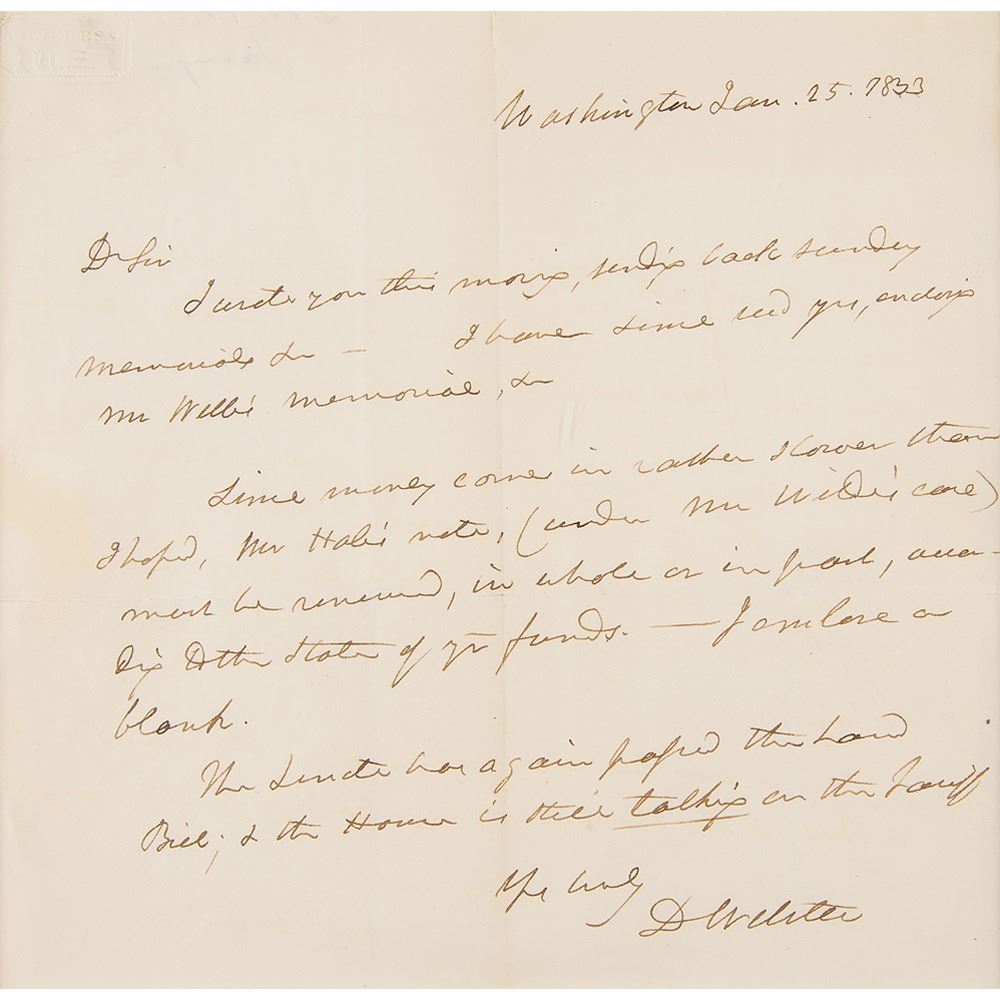 CONGRESS
Washington Jan. 25. 1833
Dr Sir
I wrote you this morng, sendg back sundry
memorials &c — I have since recd yrs, endorsg
Mr Willis' memorial, &c
Since money comes in rather slower than
I hoped, Mr Hale's note, (under Mr Wilde's care)
must be renewed, in whole or in part, accor-
dig to the state of yr funds. — I enclose a
blank.
The Senate has again passed the Land
Bill; & the House is still talkig on the Tariff
Yrs truly
D Webster